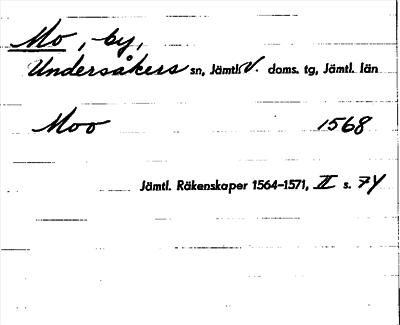 Mo, by,
Undersåkers sn, Jämtl. V. doms. tg, Jämtl. län
Moo 1568
Jämtl. Räkenskaper 1564–1571, II s. 74